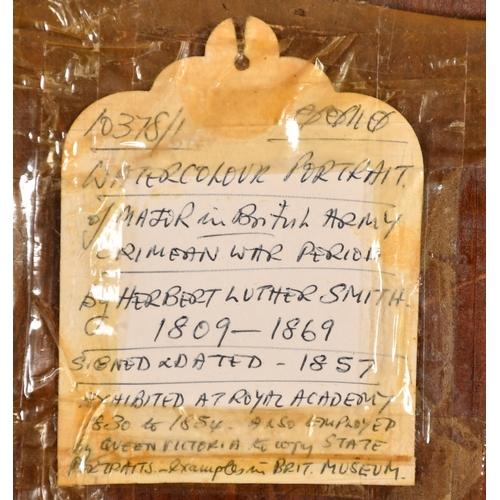 10378/1
WATERCOLOUR PORTRAIT.
of MAJOR in British ARMY
CRIMEAN WAR PERIOD
By HERBERT LUTHER SMITH.
C 1809-1869
SIGNED & DATED - 1857
EXHIBITED AT ROYAL ACADEMY
1830 to 1854. Also EMPLOYED
by QUEEN VICTORIA to copy STATE
PORTRAITS - examples in BRIT. MUSEUM.